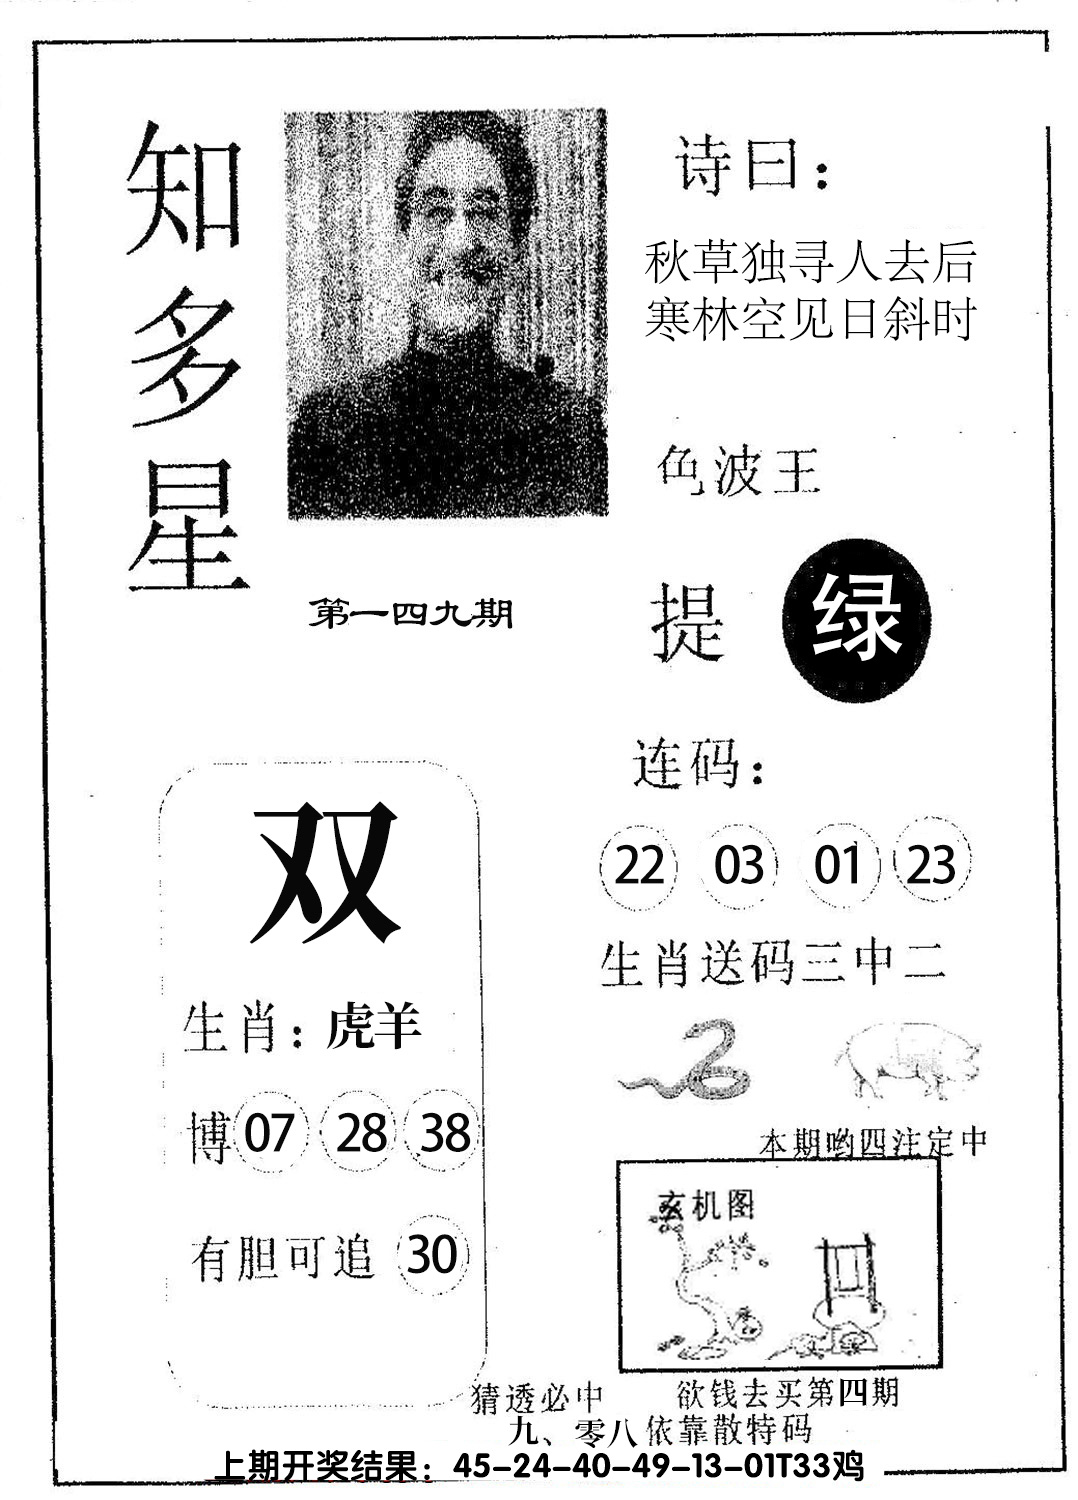 知多星
诗曰：
秋草独寻人去后
寒林空见日斜时
色波王
提 绿
第一四九期
连码：
22 03 01 23
生肖送码三中二
本期哟四注定中
玄机图
双
生肖：虎羊
博 07 28 38
有胆可追 30
猜透必中 欲钱去买第四期
九、零八依靠散特码
上期开奖结果：45-24-40-49-13-01T33鸡